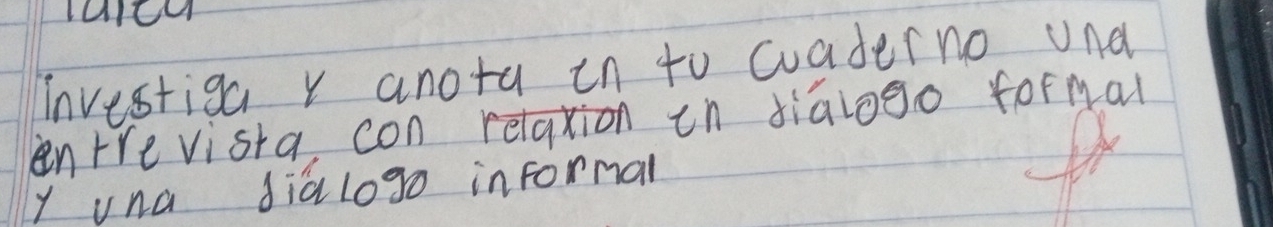 investiga y anota en tu cuaderno una
entrevista con relaxion en diálogo formal
y una diálogo informal